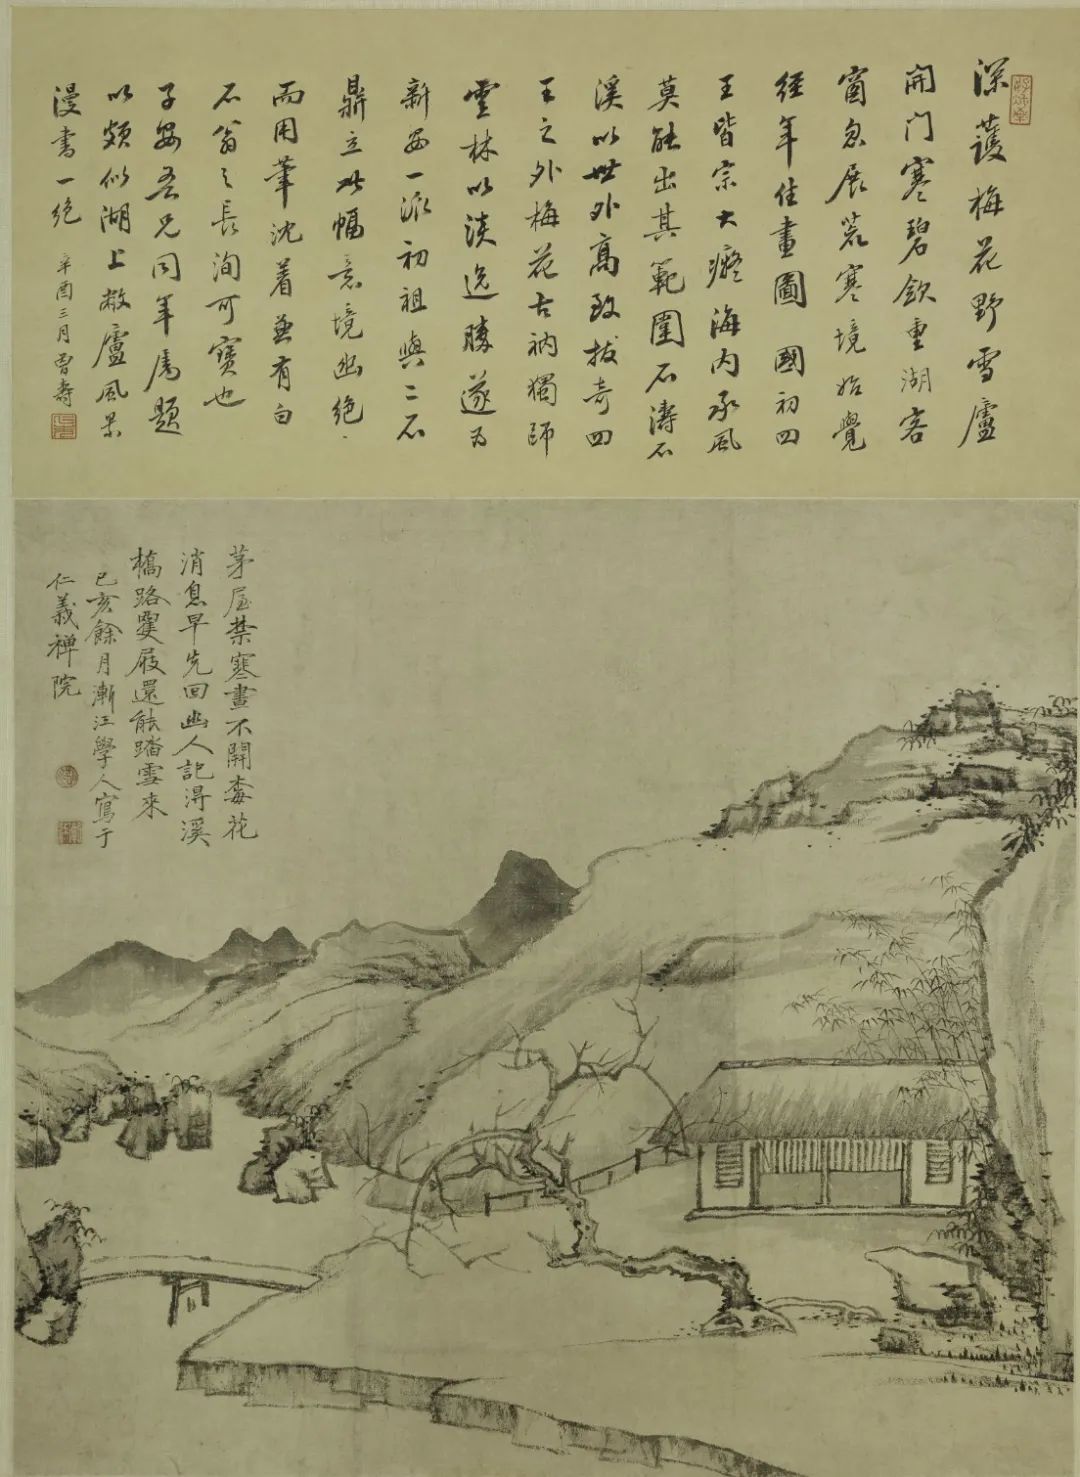 深護梅花野雪廬
開門寒碧欲重湖客
窗忽展荒寒境始覺
經年住畫圖 國初四
王皆宗大癡海內承風
莫能出其範圍石濤石
溪以世外高致拔奇四
王之外梅花古衲獨師
雲林以淡逸勝遂為
新安一派初祖與二石
鼎立此幅意境幽絕
而用筆沈着兼有白
石翁之長洵可寶也
子安吾兄同年屬題
以頗似湖上敝廬風景
漫書一絕 辛酉三月曾壽
茅屋禁寒晝不開梅花
消息早先回幽人記得溪
橋路雙屐還能踏雪來
己亥餘月漸江學人寫于
仁義禪院